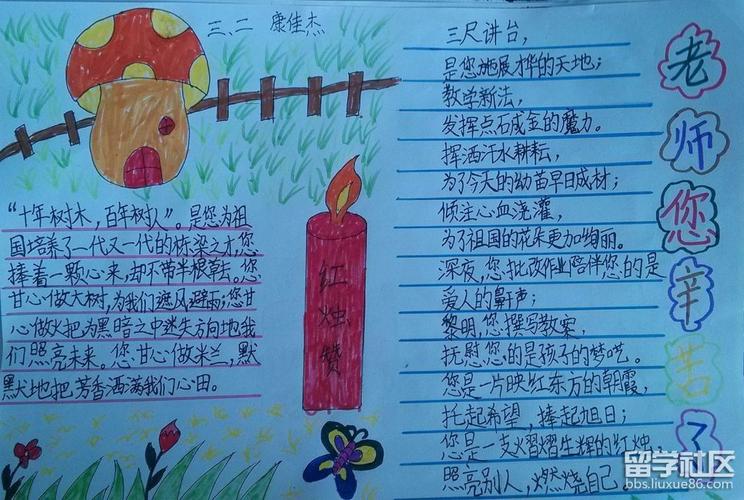 三、二 康佳杰
“十年树木，百年树人”。是您为祖
国培养了一代又一代的栋梁之才，您
捧着一颗心来，却不带半根草去。您
甘心做大树，为我们遮风避雨；您甘
心做火把为黑暗之中迷失方向地我
们照亮未来。您甘心做米兰，默
默地把芳香洒满我们心田。
红烛赞
三尺讲台，
是您施展才华的天地；
教学新法，
发挥点石成金的魔力。
挥洒汗水耕耘，
为了今天的幼苗早日成材；
倾注心血浇灌，
为了祖国的花朵更加绚丽。
深夜，您批改作业陪伴您的是
爱人的鼾声；
黎明，您撰写教案，
抚慰您的是孩子的梦呓。
您是一片映红东方的朝霞，
托起希望，捧起旭日；
您是一支熠熠生辉的红烛，
照亮别人，燃烧自己
老师您辛苦了
留学社区
bbs.liuxue86.com